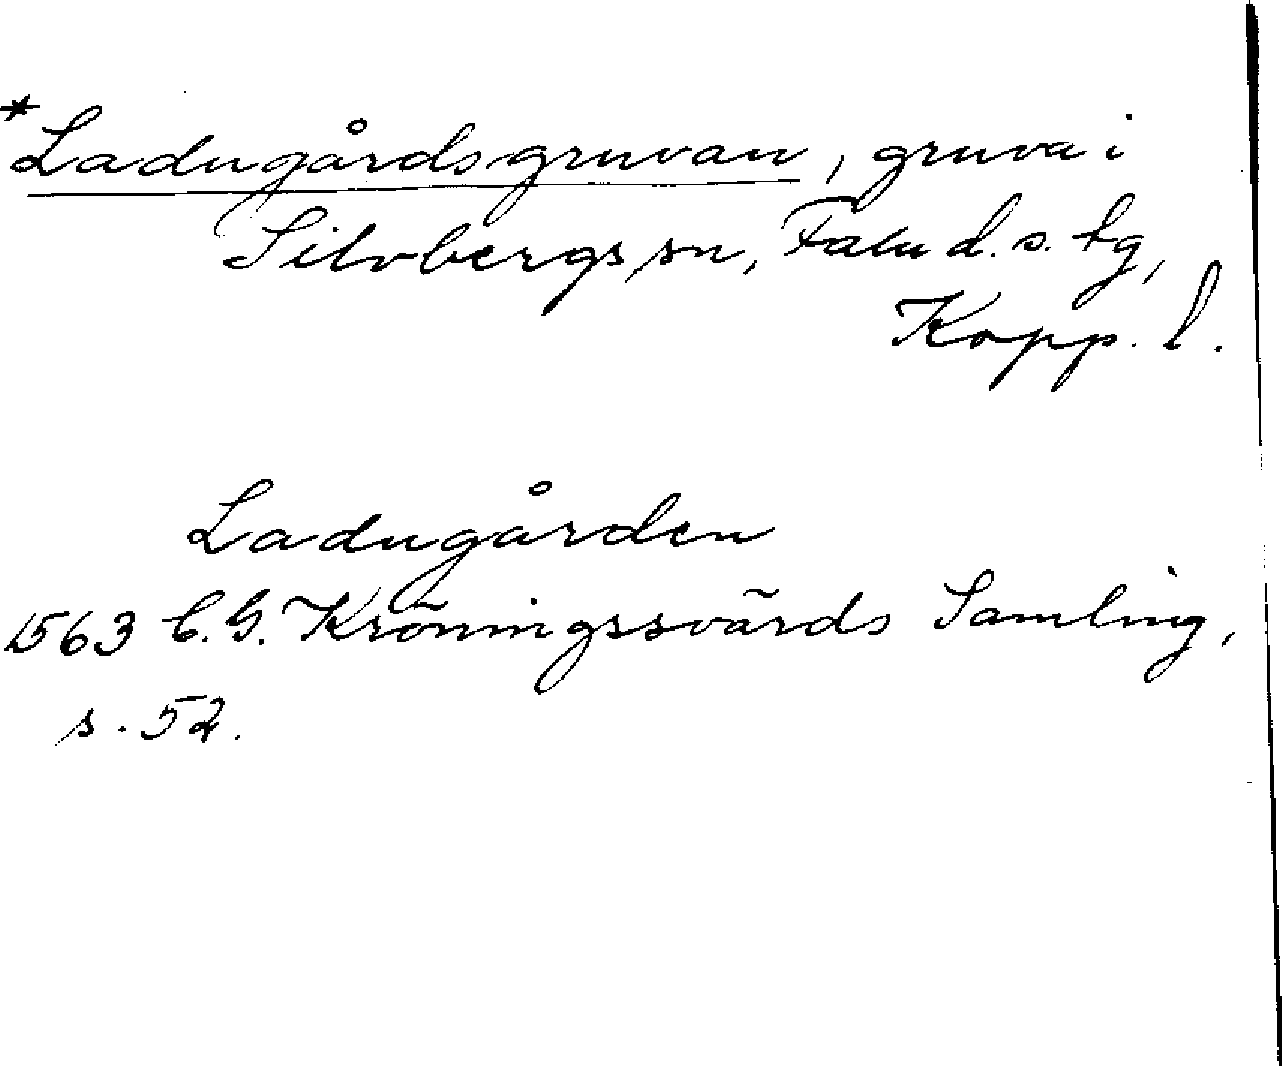 *Ladugårdsgruvan, gruva i
Silvbergs sn, Falu d. s. tg,
Kopp. l.
Ladugården
1563 C. G. Kröningssvärds Samling,
s. 52.